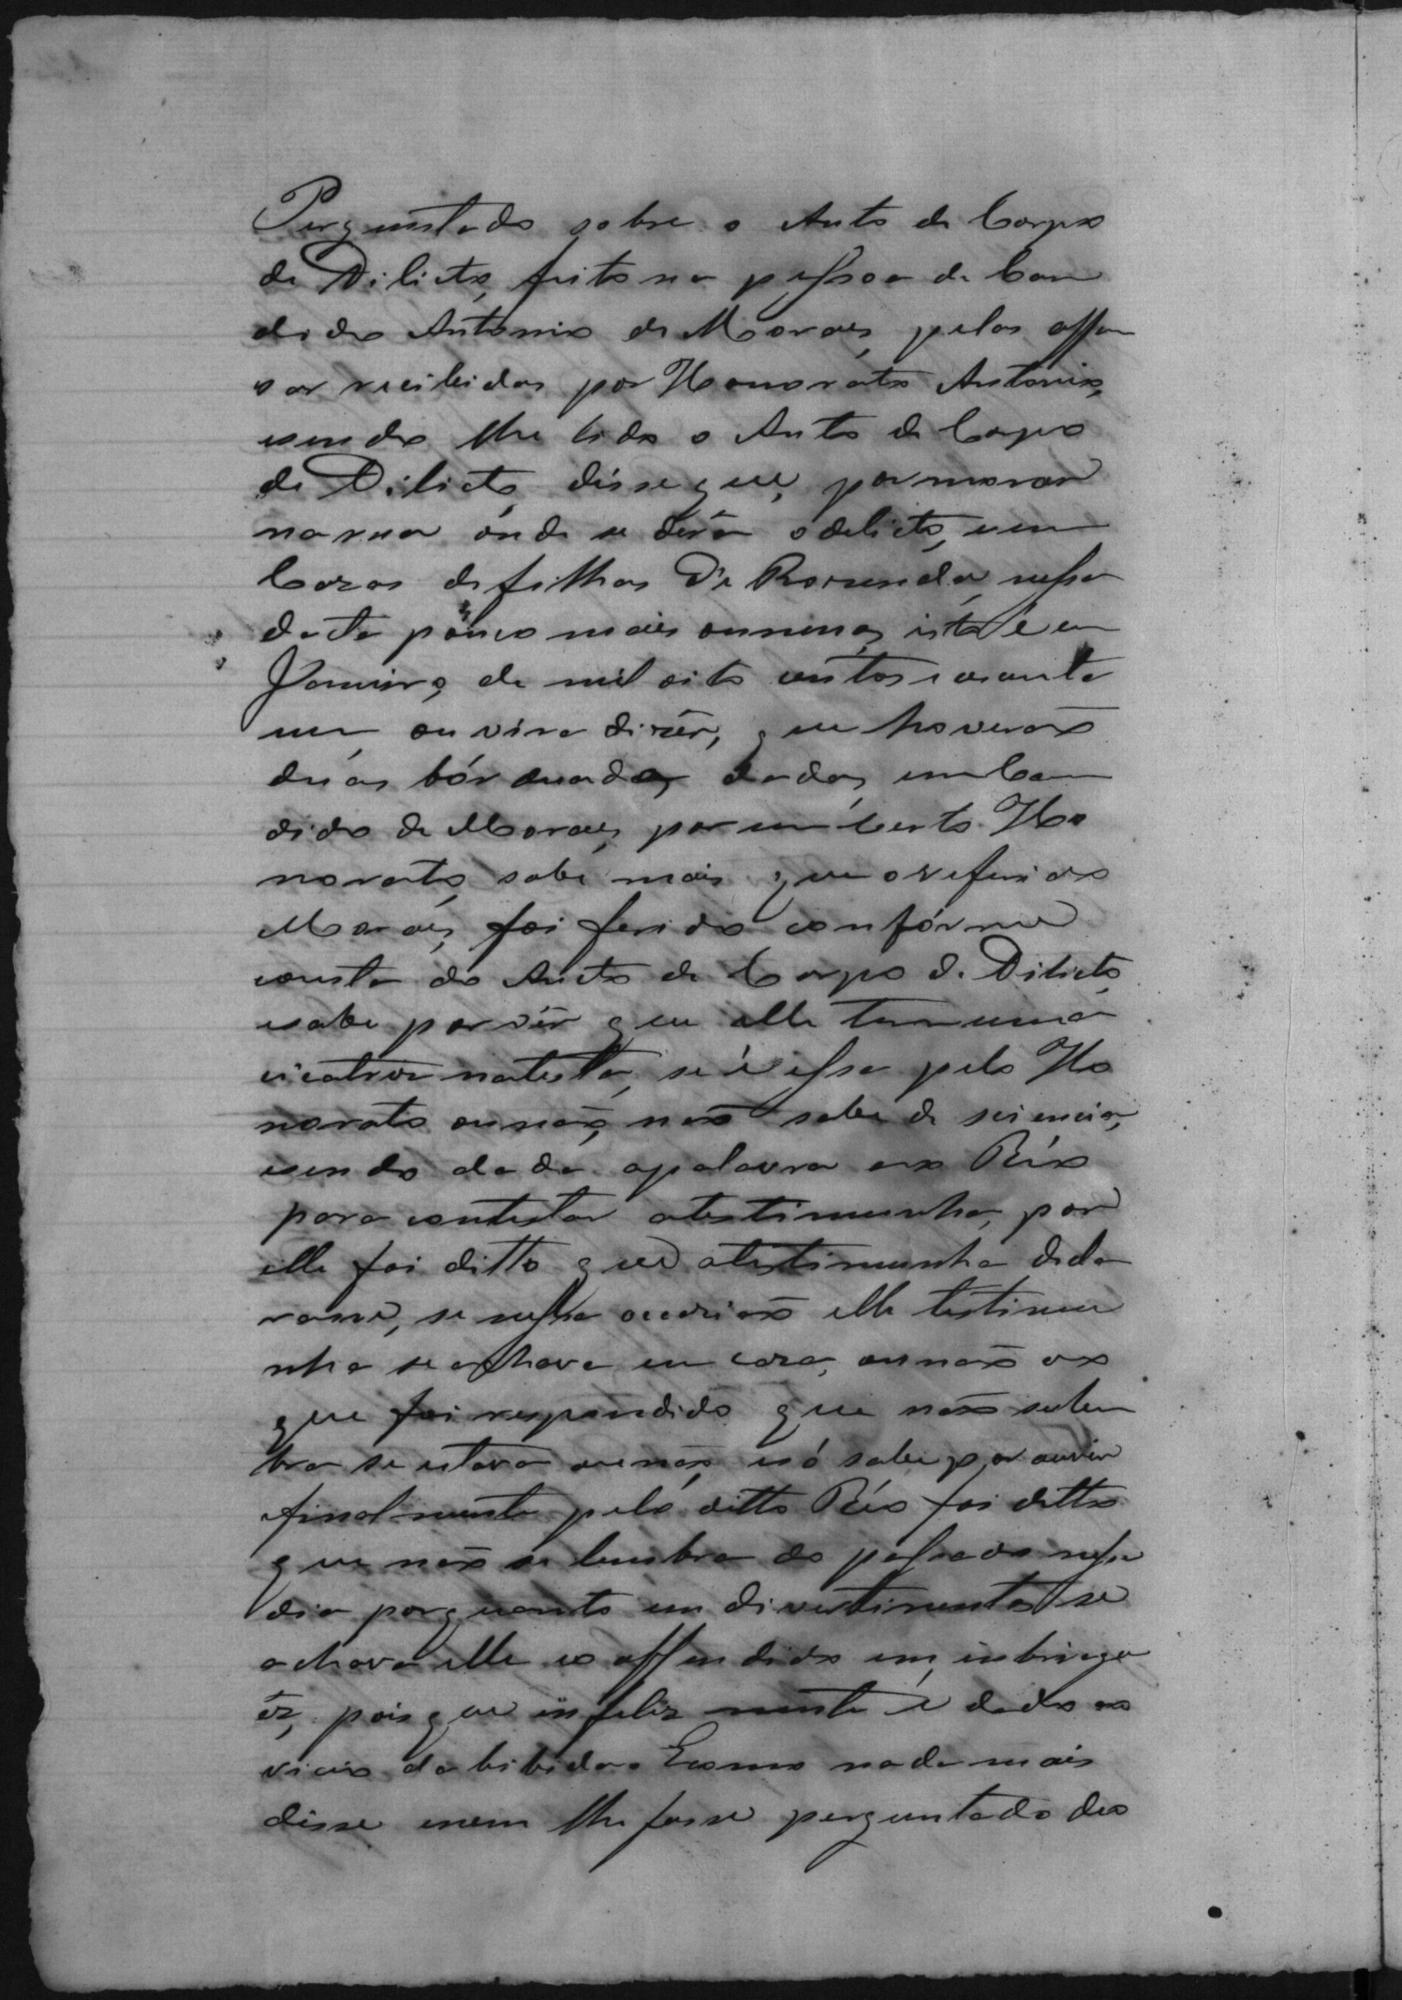 Perguntado sobre o Auto de Corpo
de Dilicto, feito na pessoa de Can
dido Antonio de Moraes, pelas offen
sas recibidas por Honorato Antonio,
esendo lhe lido o Auto de Corpo
de Dilicto, disse que, por morar
na rua ónde se dera o delicto, em
Cazas de filhas De Rosenda, nessa
data pouco mais ou menos, isto é em
Janeiro, de mil oito centos e oitenta
um, ouvira dizêr, que houverão
duas bórduadas dadas em Can
dido de Moraes, por um certo Ho
norato, sabe mais que o referido
Moraes, foi ferido confórme
consta do Aucto de Corpo de Dilicto,
e sabe por vêr que elle tem uma
cicatriz na testa, se é essa pelo Ho
norato ou não, não sabe de sciencia,
esendo dada apalavra ao Réo
para contestar atestimunha, por
elle foi ditto que atestimunha decla
rasse, se nessa occazião elle testimu
nha se achava em caza, ou não ao
que foi respondido que não se lem
bra se estava ou não, e só sabe por ouvir
e finalmente pelo ditto Réo foi ditto
que não se lembra do passado nesse
dia porquanto em divertimentos se
achava elle e o offendido em, imbriaga
êz, pois que infeliz mente é dado ao
vicio da bibida. E como nada mais
disse e nem lhe fosse perguntado deo